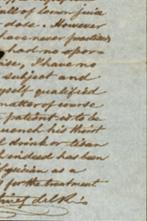 of lemon juice
date. However
have never practiced
had no oppor
I have no
subject and
myself qualified
matter of course
patient is to be
quench his thirst
drink or tisan
indeed has been
Physician as a
for the treatment